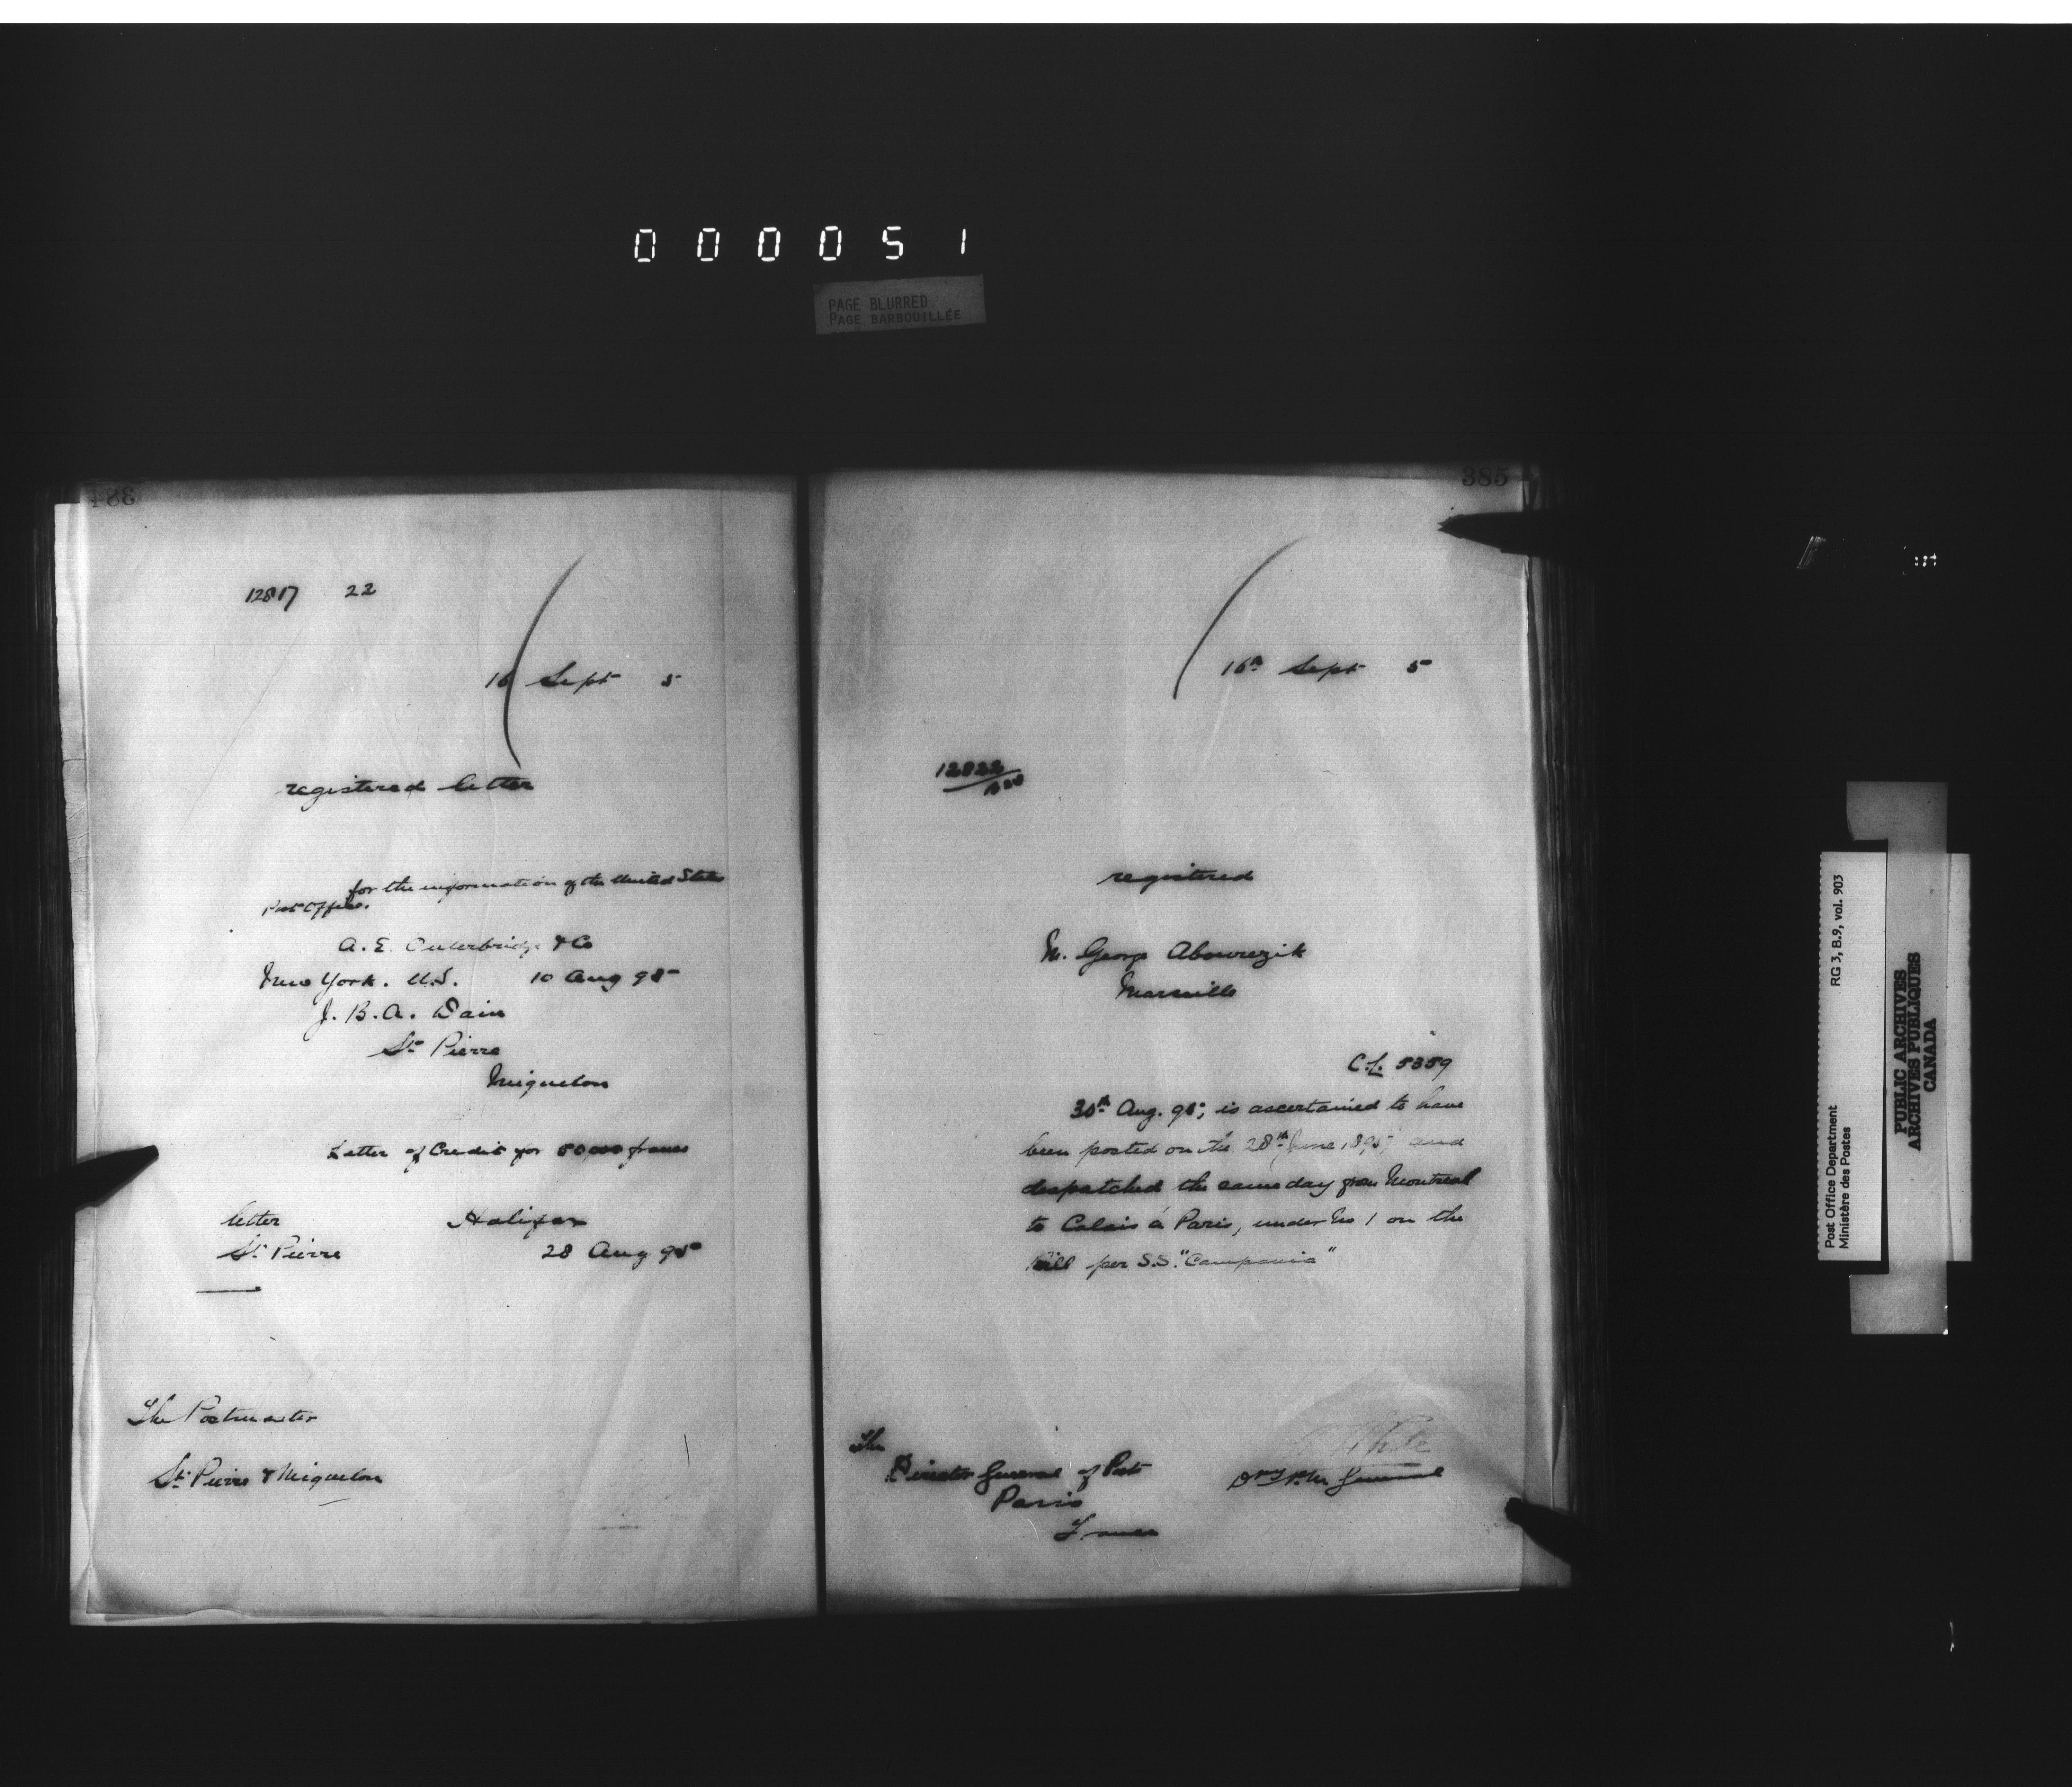 000051
PAGE BLURRED
PAGE BARBOUILLÉE
384
12817 22
16 Sept 5
registered letter
for the information of the United States
Post Office.
A. E. Outerbridge & Co
New York. U.S. 10 Aug 95
J. B. A. Dain
St. Pierre
Miquelon
Letter of Credit for 50,000 francs
letter Halifax
St. Pierre 28 Aug 95
The Postmaster
St. Pierre & Miquelon
385
16th Sept 5
12822
registered
M. George Abourezik
Marseille
C.L. 5359
30th Aug. 95; is ascertained to have
been posted on the 28th June 1895 and
despatched the same day from Montreal
to Calais à Paris, under No 1 on the
Bill per S.S. "Campania"
The
Director General of Posts
Paris
France
White
Dpy P.M. General
Post Office Department RG 3, B.9, vol. 903
Ministère des Postes
PUBLIC ARCHIVES
ARCHIVES PUBLIQUES
CANADA